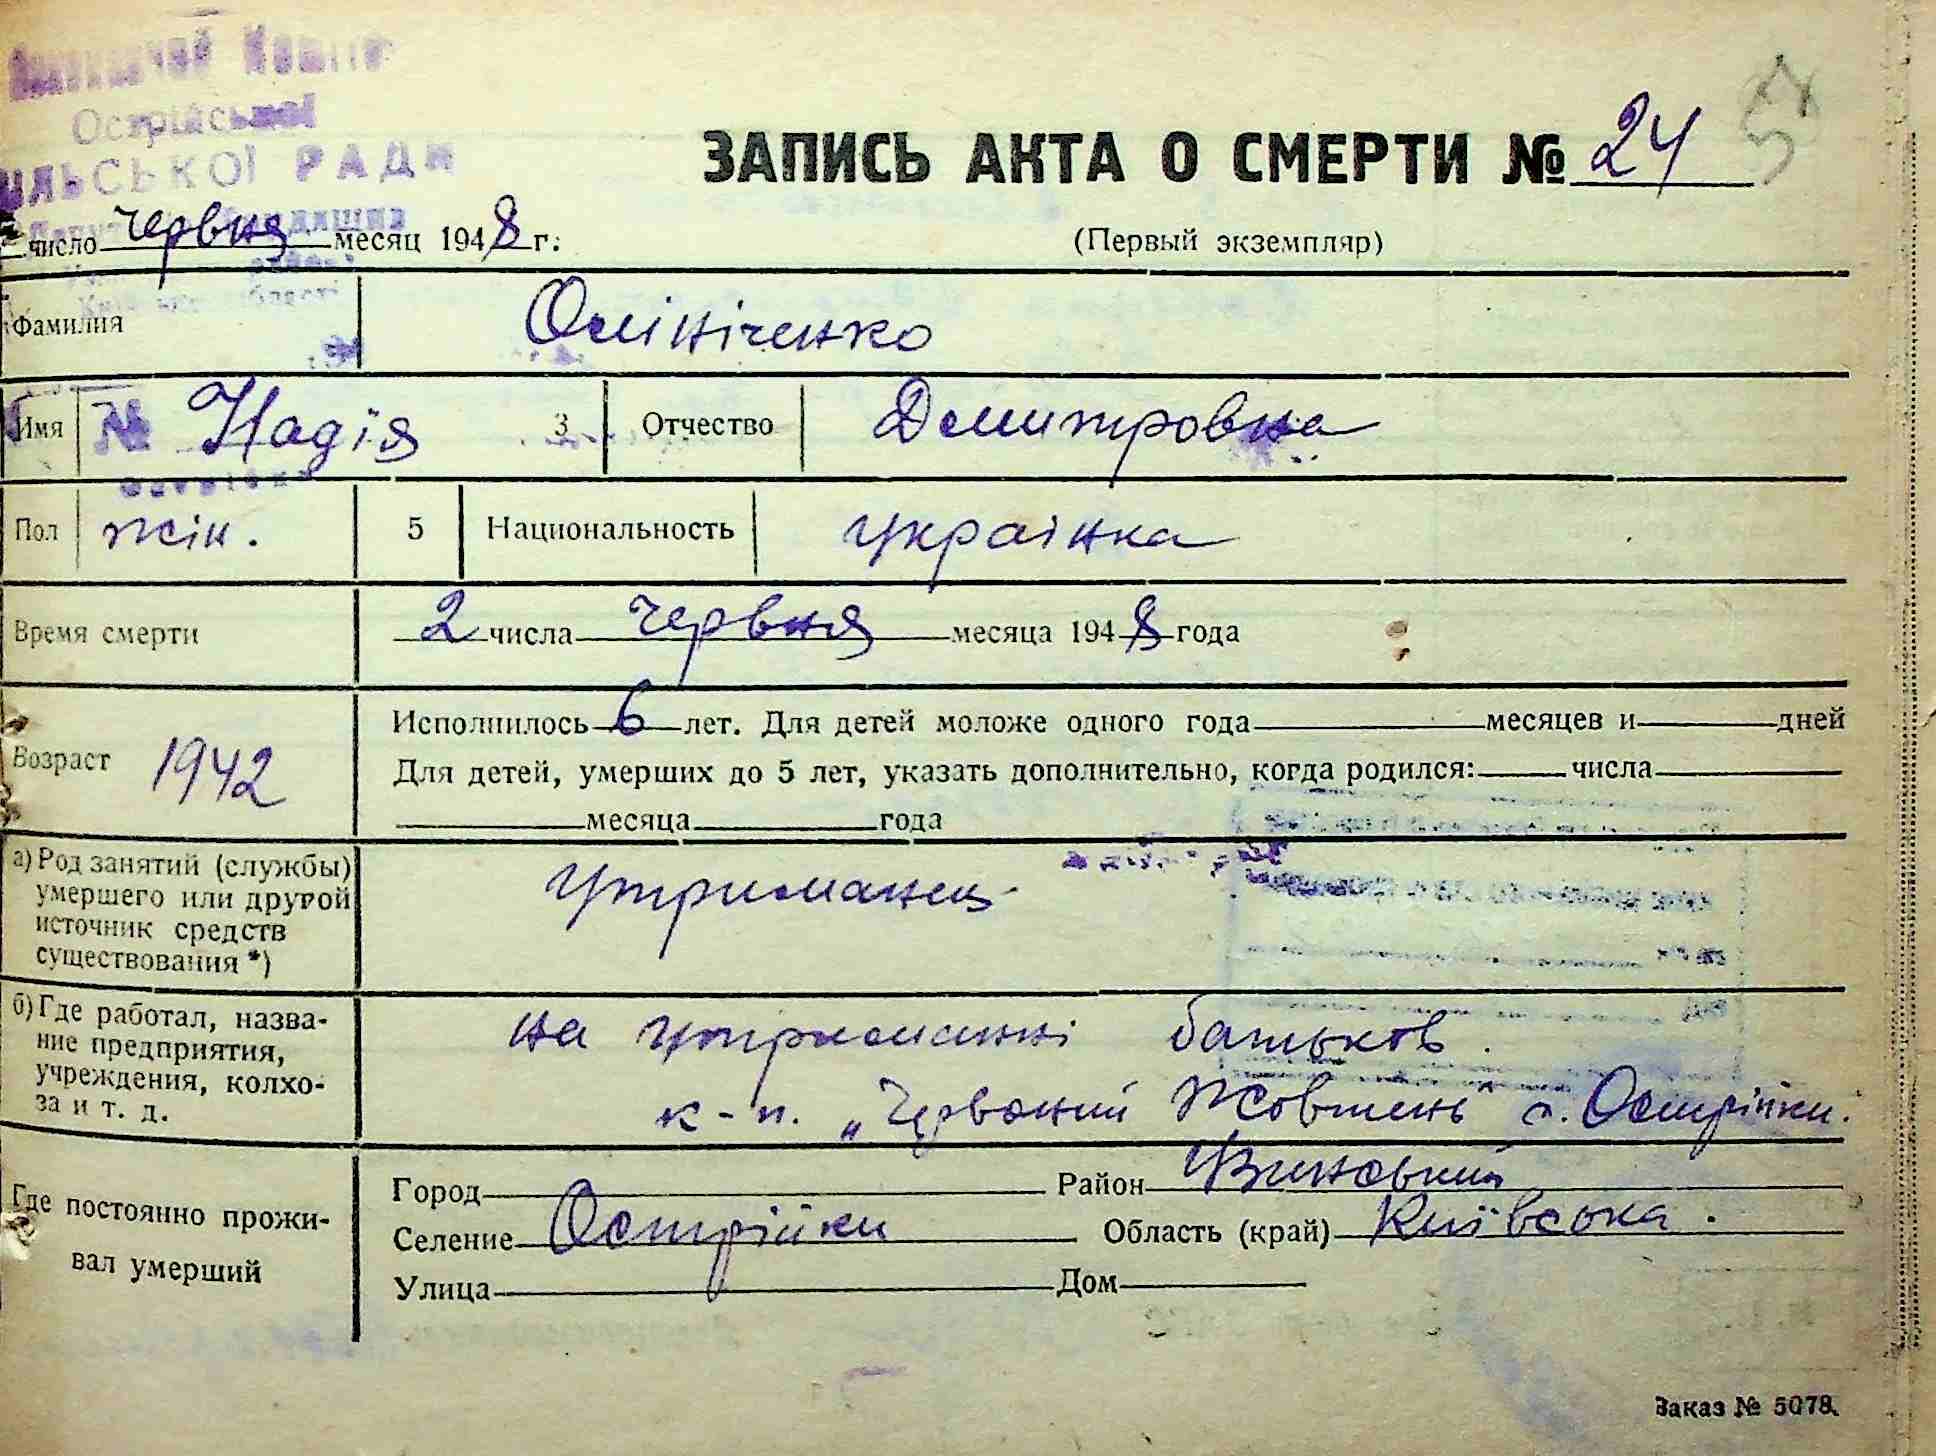 Острійської
РАДИ
ЗАПИСЬ АКТА О СМЕРТИ № 24
число червня месяц 1948 г.
(Первый экземпляр)
Фамилия Олініченко
Имя Надія 3 Отчество Дмитровна
Пол жін. 5 Национальность українка
Время смерти 2 числа червня месяца 1948 года
Возраст 1942
Исполнилось 6 лет. Для детей моложе одного года месяцев и дней
Для детей, умерших до 5 лет, указать дополнительно, когда родился: числа
месяца года
а) Род занятий (службы)
умершего или другой
источник средств
существования *)
утриманец
б) Где работал, назва-
ние предприятия,
учреждения, колхо-
за и т. д.
на утриманні батьков.
к-п. „Червоний Жовтень" с. Острійки.
Где постоянно прожи-
вал умерший
Город Район Узинський
Селение Острійки Область (край) Київська.
Улица Дом
Заказ № 5078.